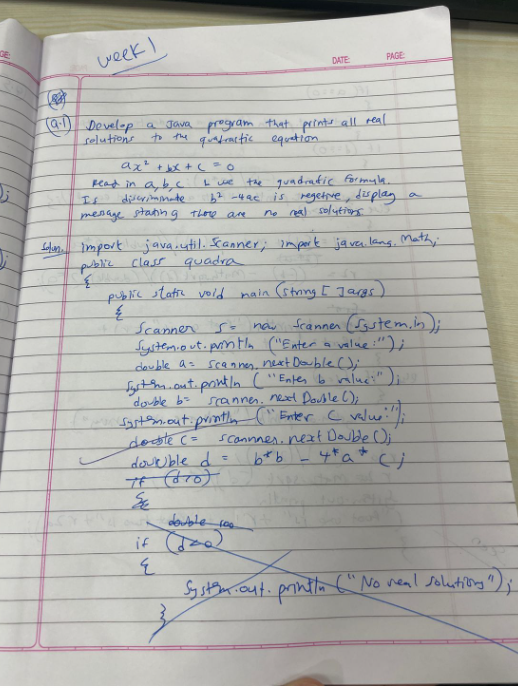 week 1
DATE: PAGE:
(Q.1) Develop a Java program that prints all real
solutions to the quadractic eqution
ax² + bx + c = 0
Read in a, b, c & use the quadratic formula.
If discriminate b² - 4ac is negetive, display a
message stating there are no real solutions
Soln. import java.util.Scanner; import java.lang.Math;
public class quadra
{
public static void main (string [ ] args)
{
Scanner s = new Scanner (System.in);
System.out.println ("Enter a value:");
double a = scanner.nextDouble();
System.out.println ("Enter b value:");
double b = scanner.nextDouble();
System.out.println ("Enter C value:");
double c = scannner.nextDouble();
double d = b*b - 4*a* c;
if (d>0)
{
double
if (d<0)
{
System.out.println ("No real solutions");
}